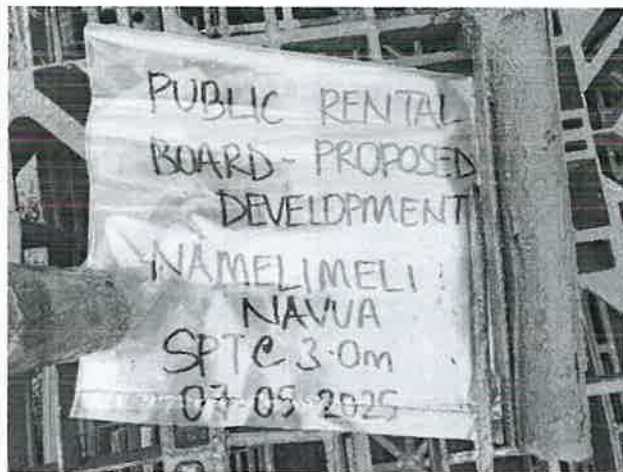 PUBLIC RENTAL
BOARD - PROPOSED
DEVELOPMENT
NAMELIMELI :
NAVUA
SPTC 3.0m
07-05-2025